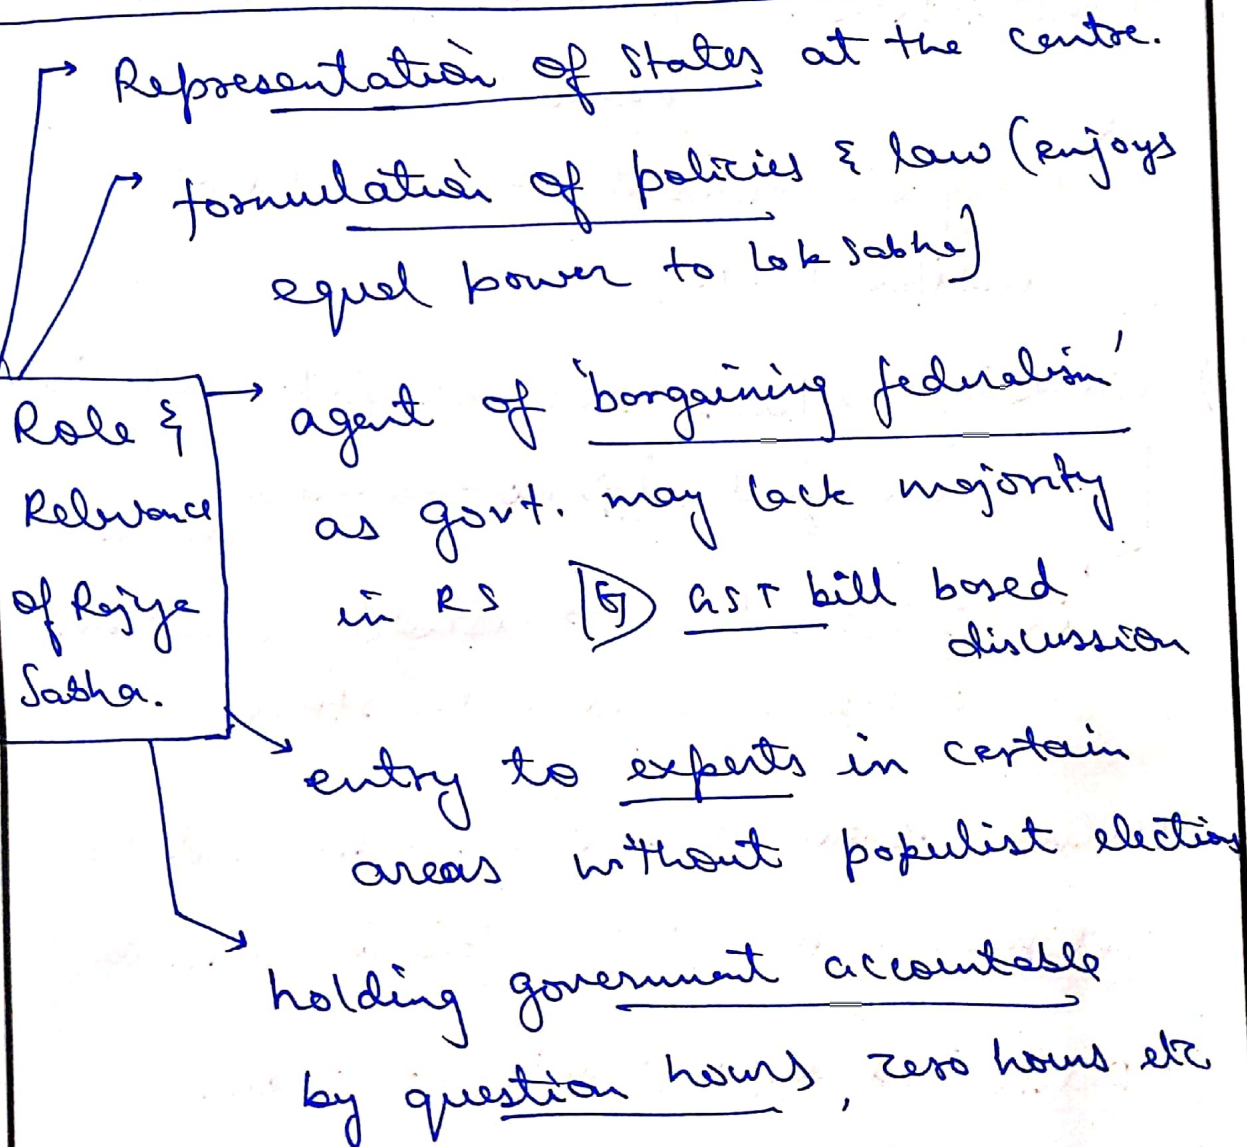 Representation of States at the centre.
formulation of policies & law (enjoys
equal power to Lok Sabha)
Role &
Relevance
of Rajya
Sabha.
agent of 'bargaining federalism'
as govt. may lack majority
in RS Eg GST bill based
discussion
entry to experts in certain
areas without populist elections
holding government accountable
by question hours, zero hours etc